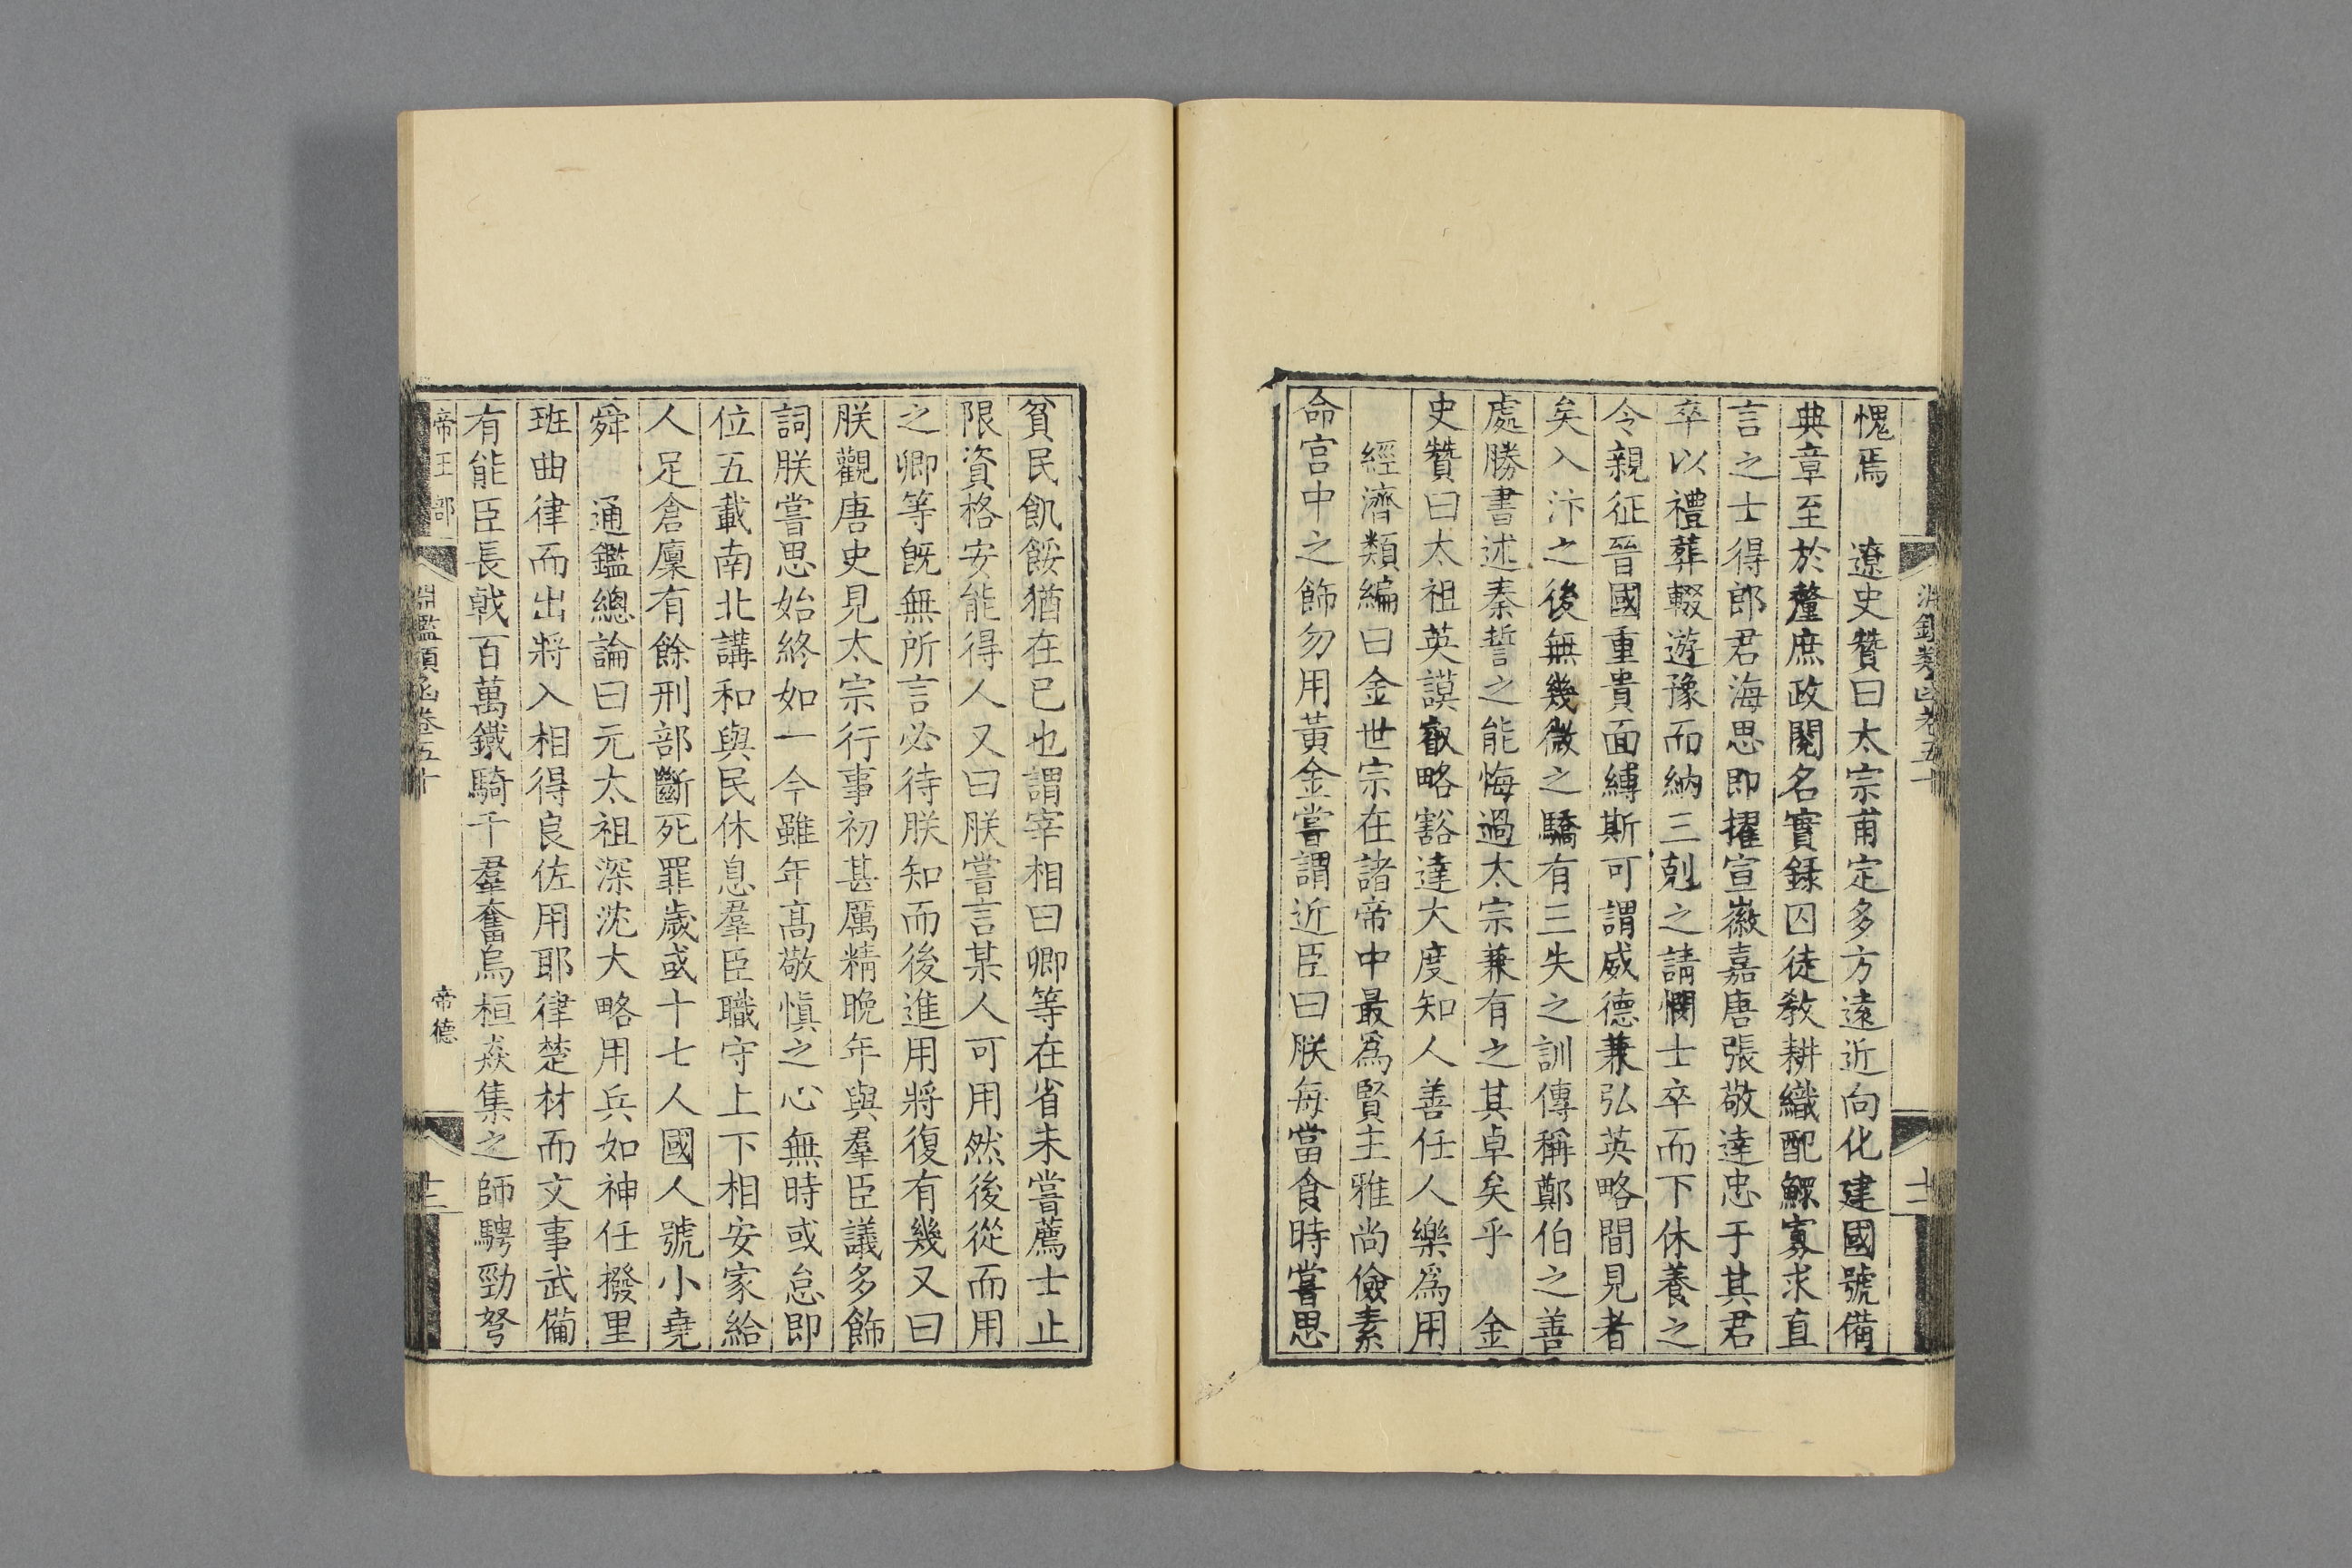 愧焉　遼史贊曰太宗甫定多方遠近向化建國號備
典章至於釐庶政閱名實錄囚徒教耕織配鰥寡求直
言之士得郎君海思即擢宣徽嘉唐張敬達忠于其君
卒以禮葬輟遊豫而納三剋之請憫士卒而下休養之
令親征晉國重貴面縛斯可謂威德兼弘英略間見者
矣入汴之後無幾微之驕有三失之訓傳稱鄭伯之善
處勝書述秦誓之能悔過太宗兼有之其卓矣乎　金
史贊曰太祖英謨叡略豁達大度知人善任人樂爲用
經濟類編曰金世宗在諸帝中最爲賢主雅尚儉素
命宮中之飾勿用黃金嘗謂近臣曰朕每當食時嘗思
貧民飢餒猶在已也謂宰相曰卿等在省未嘗薦士止
限資格安能得人又曰朕嘗言某人可用然後從而用
之卿等旣無所言必待朕知而後進用將復有幾又曰
朕觀唐史見太宗行事初甚厲精晚年與羣臣議多飾
詞朕嘗思始終如一今雖年高敬慎之心無時或怠即
位五載南北講和與民休息羣臣職守上下相安家給
人足倉廩有餘刑部斷死罪歲或十七人國人號小堯
舜　通鑑總論曰元太祖深沈大略用兵如神任撥里
班曲律而出將入相得良佐用耶律楚材而文事武備
有能臣長戟百萬鐵騎千羣奮烏桓猋集之師騁勁弩
帝王部
淵鑑類函卷五十
帝德
十三
淵鑑類函卷五十
十二